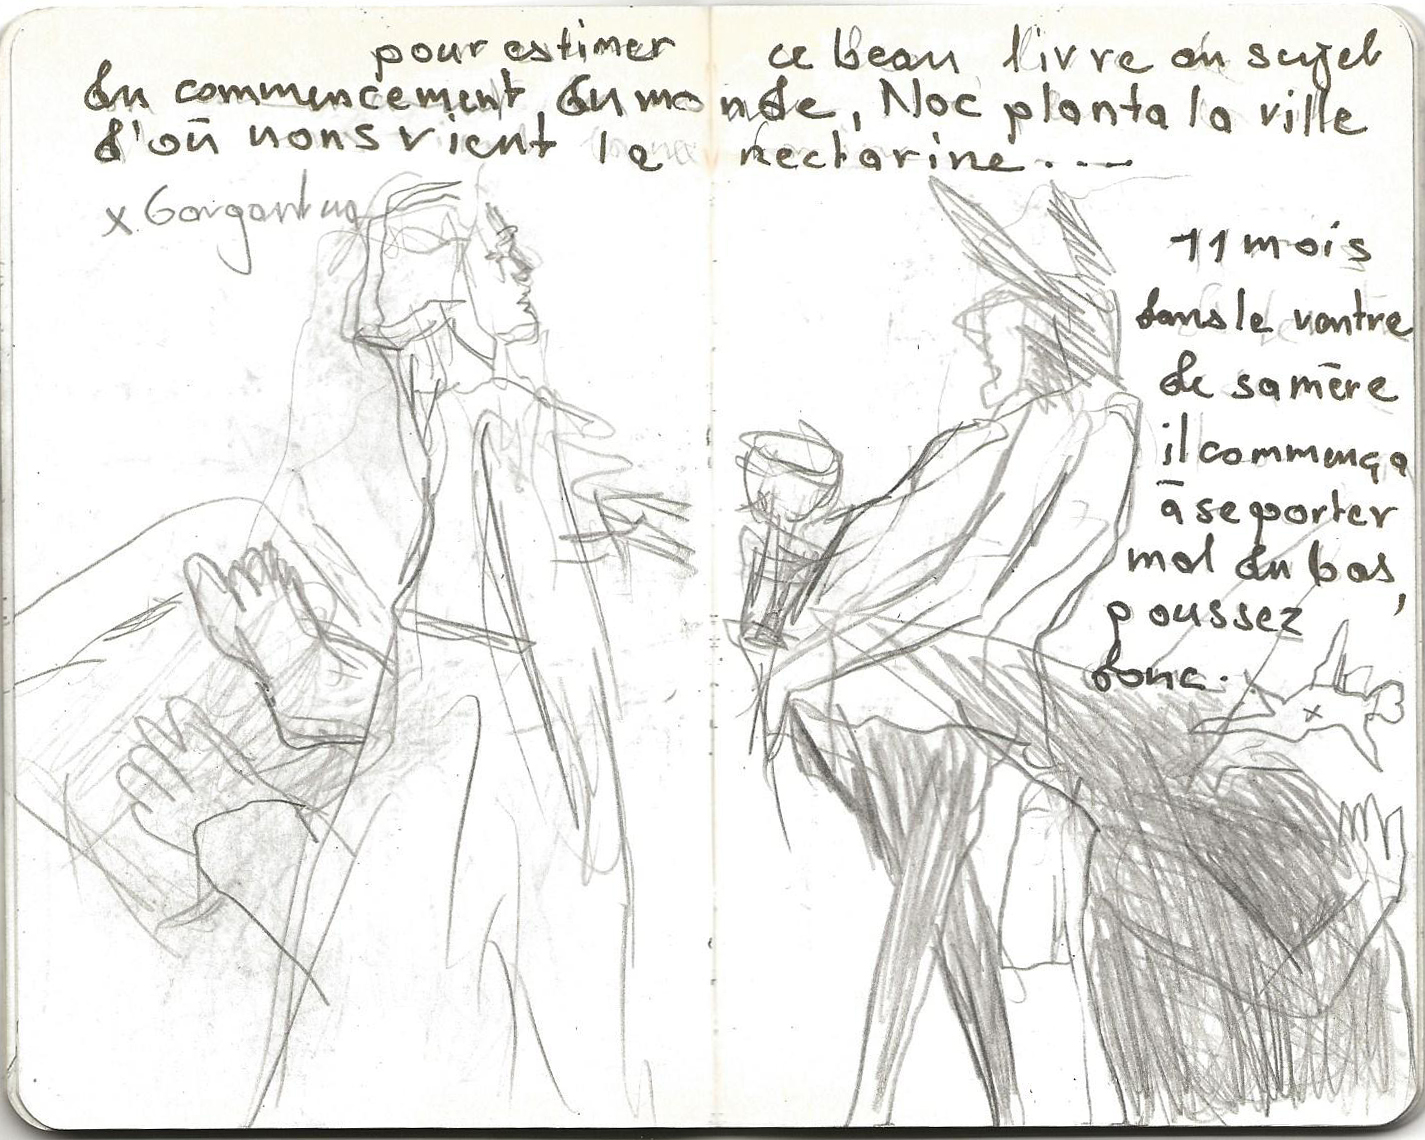 pour estimer ce beau livre au sujet
du commencement du monde, Noé planta la ville
d'où nous vient la nectarine...
x Gargantua
11 mois
dans le ventre
de sa mère
il commença
à se porter
mal du bas,
poussez
donc.